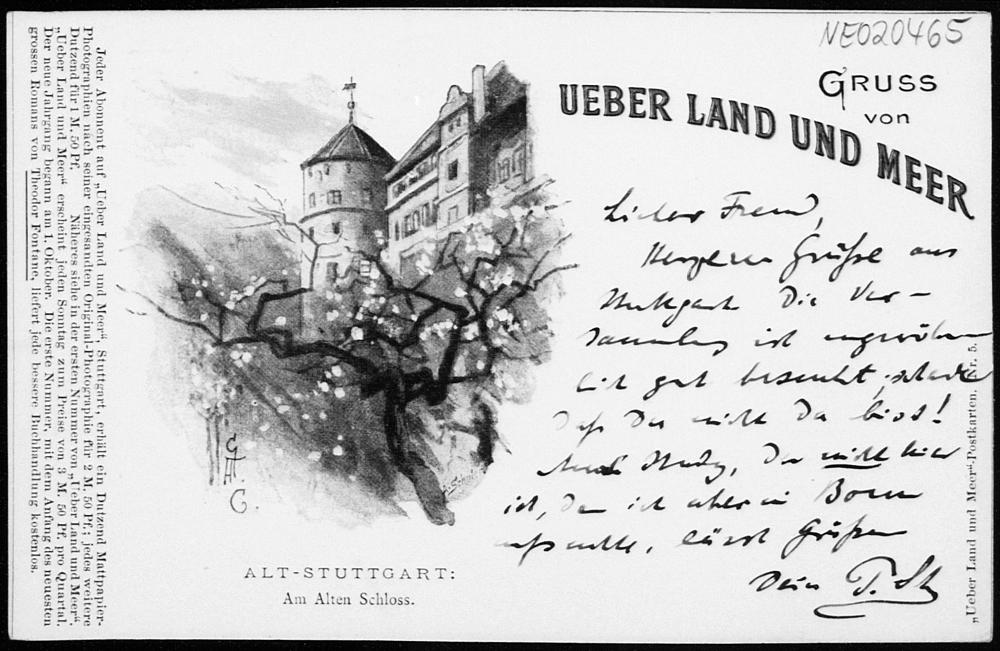 NE020465
GRUSS
von
UEBER LAND UND MEER
Lieber Freund,
Herzliche Grüße aus
Stuttgart Die Ver-
sammlung ist ungewöhn
lich gut besucht, schade
daß Du nicht da bist!
Auch Study, der nicht hier
ist, den ich aber in Bonn
aufsuchte, lässt Grüßen
Dein
ALT-STUTTGART:
Am Alten Schloss.
Jeder Abonnent auf „Ueber Land und Meer“, Stuttgart, erhält ein Dutzend Mattpapier-
Photographien nach seiner eingesandten Original-Photographie für 2 M. 50 Pf.; jedes weitere
Dutzend für 1 M. 50 Pf. Näheres siehe in der ersten Nummer von „Ueber Land und Meer“.
„Ueber Land und Meer“ erscheint jeden Sonntag zum Preise von 3 M. 50 Pf. pro Quartal.
Der neue Jahrgang begann am 1. Oktober. Die erste Nummer, mit dem Anfang des neuesten
grossen Romans von Theodor Fontane, liefert jede bessere Buchhandlung kostenlos.
„Ueber Land und Meer“-Postkarten. Nr. 5.